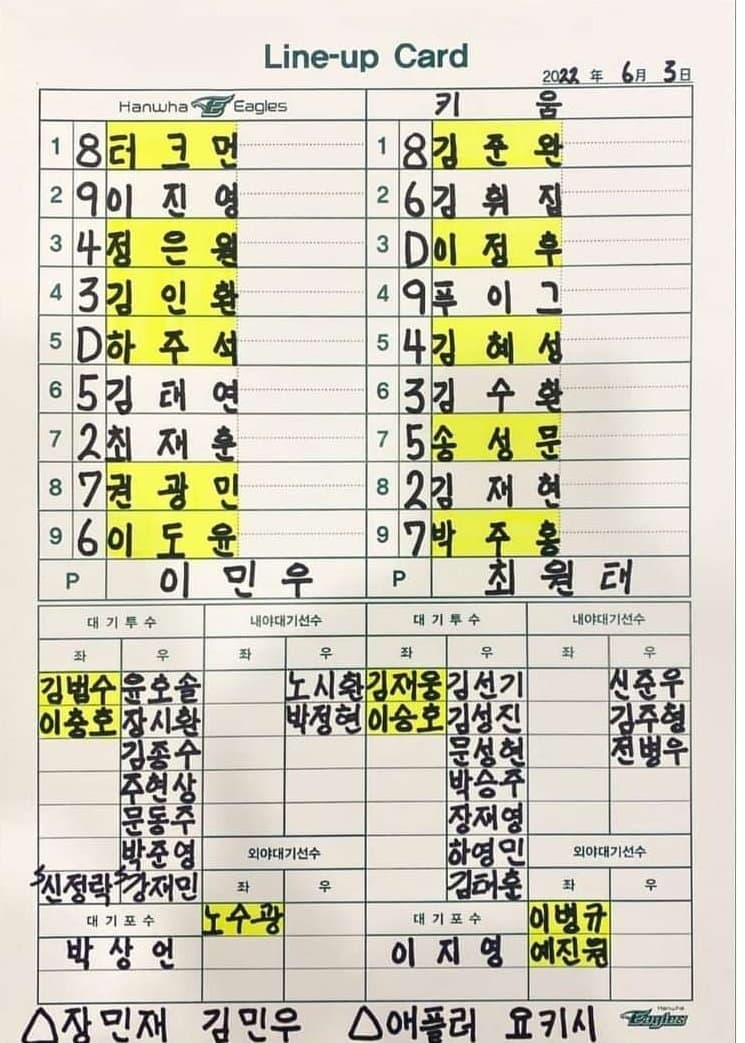 Line-up Card
2022 年 6月 3日
Hanwha Eagles 키움
1 8 터크먼 1 8 김준완
2 9 이진영 2 6 김휘집
3 4 정은원 3 D 이정후
4 3 김인환 4 9 푸이그
5 D 하주석 5 4 김혜성
6 5 김태연 6 3 김수환
7 2 최재훈 7 5 송성문
8 7 권광민 8 2 김재현
9 6 이도윤 9 7 박주홍
P 이민우 P 최원태
대기투수 내야대기선수 대기투수 내야대기선수
좌 우 좌 우 좌 우 좌 우
김범수 윤호솔 노시환 김재웅 김선기 신준우
이충호 장시환 박정현 이승호 김성진 김주형
김종수 문성현 전병우
주현상 박승주
문동주 장재영
박준영 외야대기선수 하영민 외야대기선수
신정락 강재민 좌 우 김태훈 좌 우
대기포수 노수광 대기포수 이병규
박상언 이지영 예진원
△장민재 김민우 △애플러 요키시
Hanwha Eagles